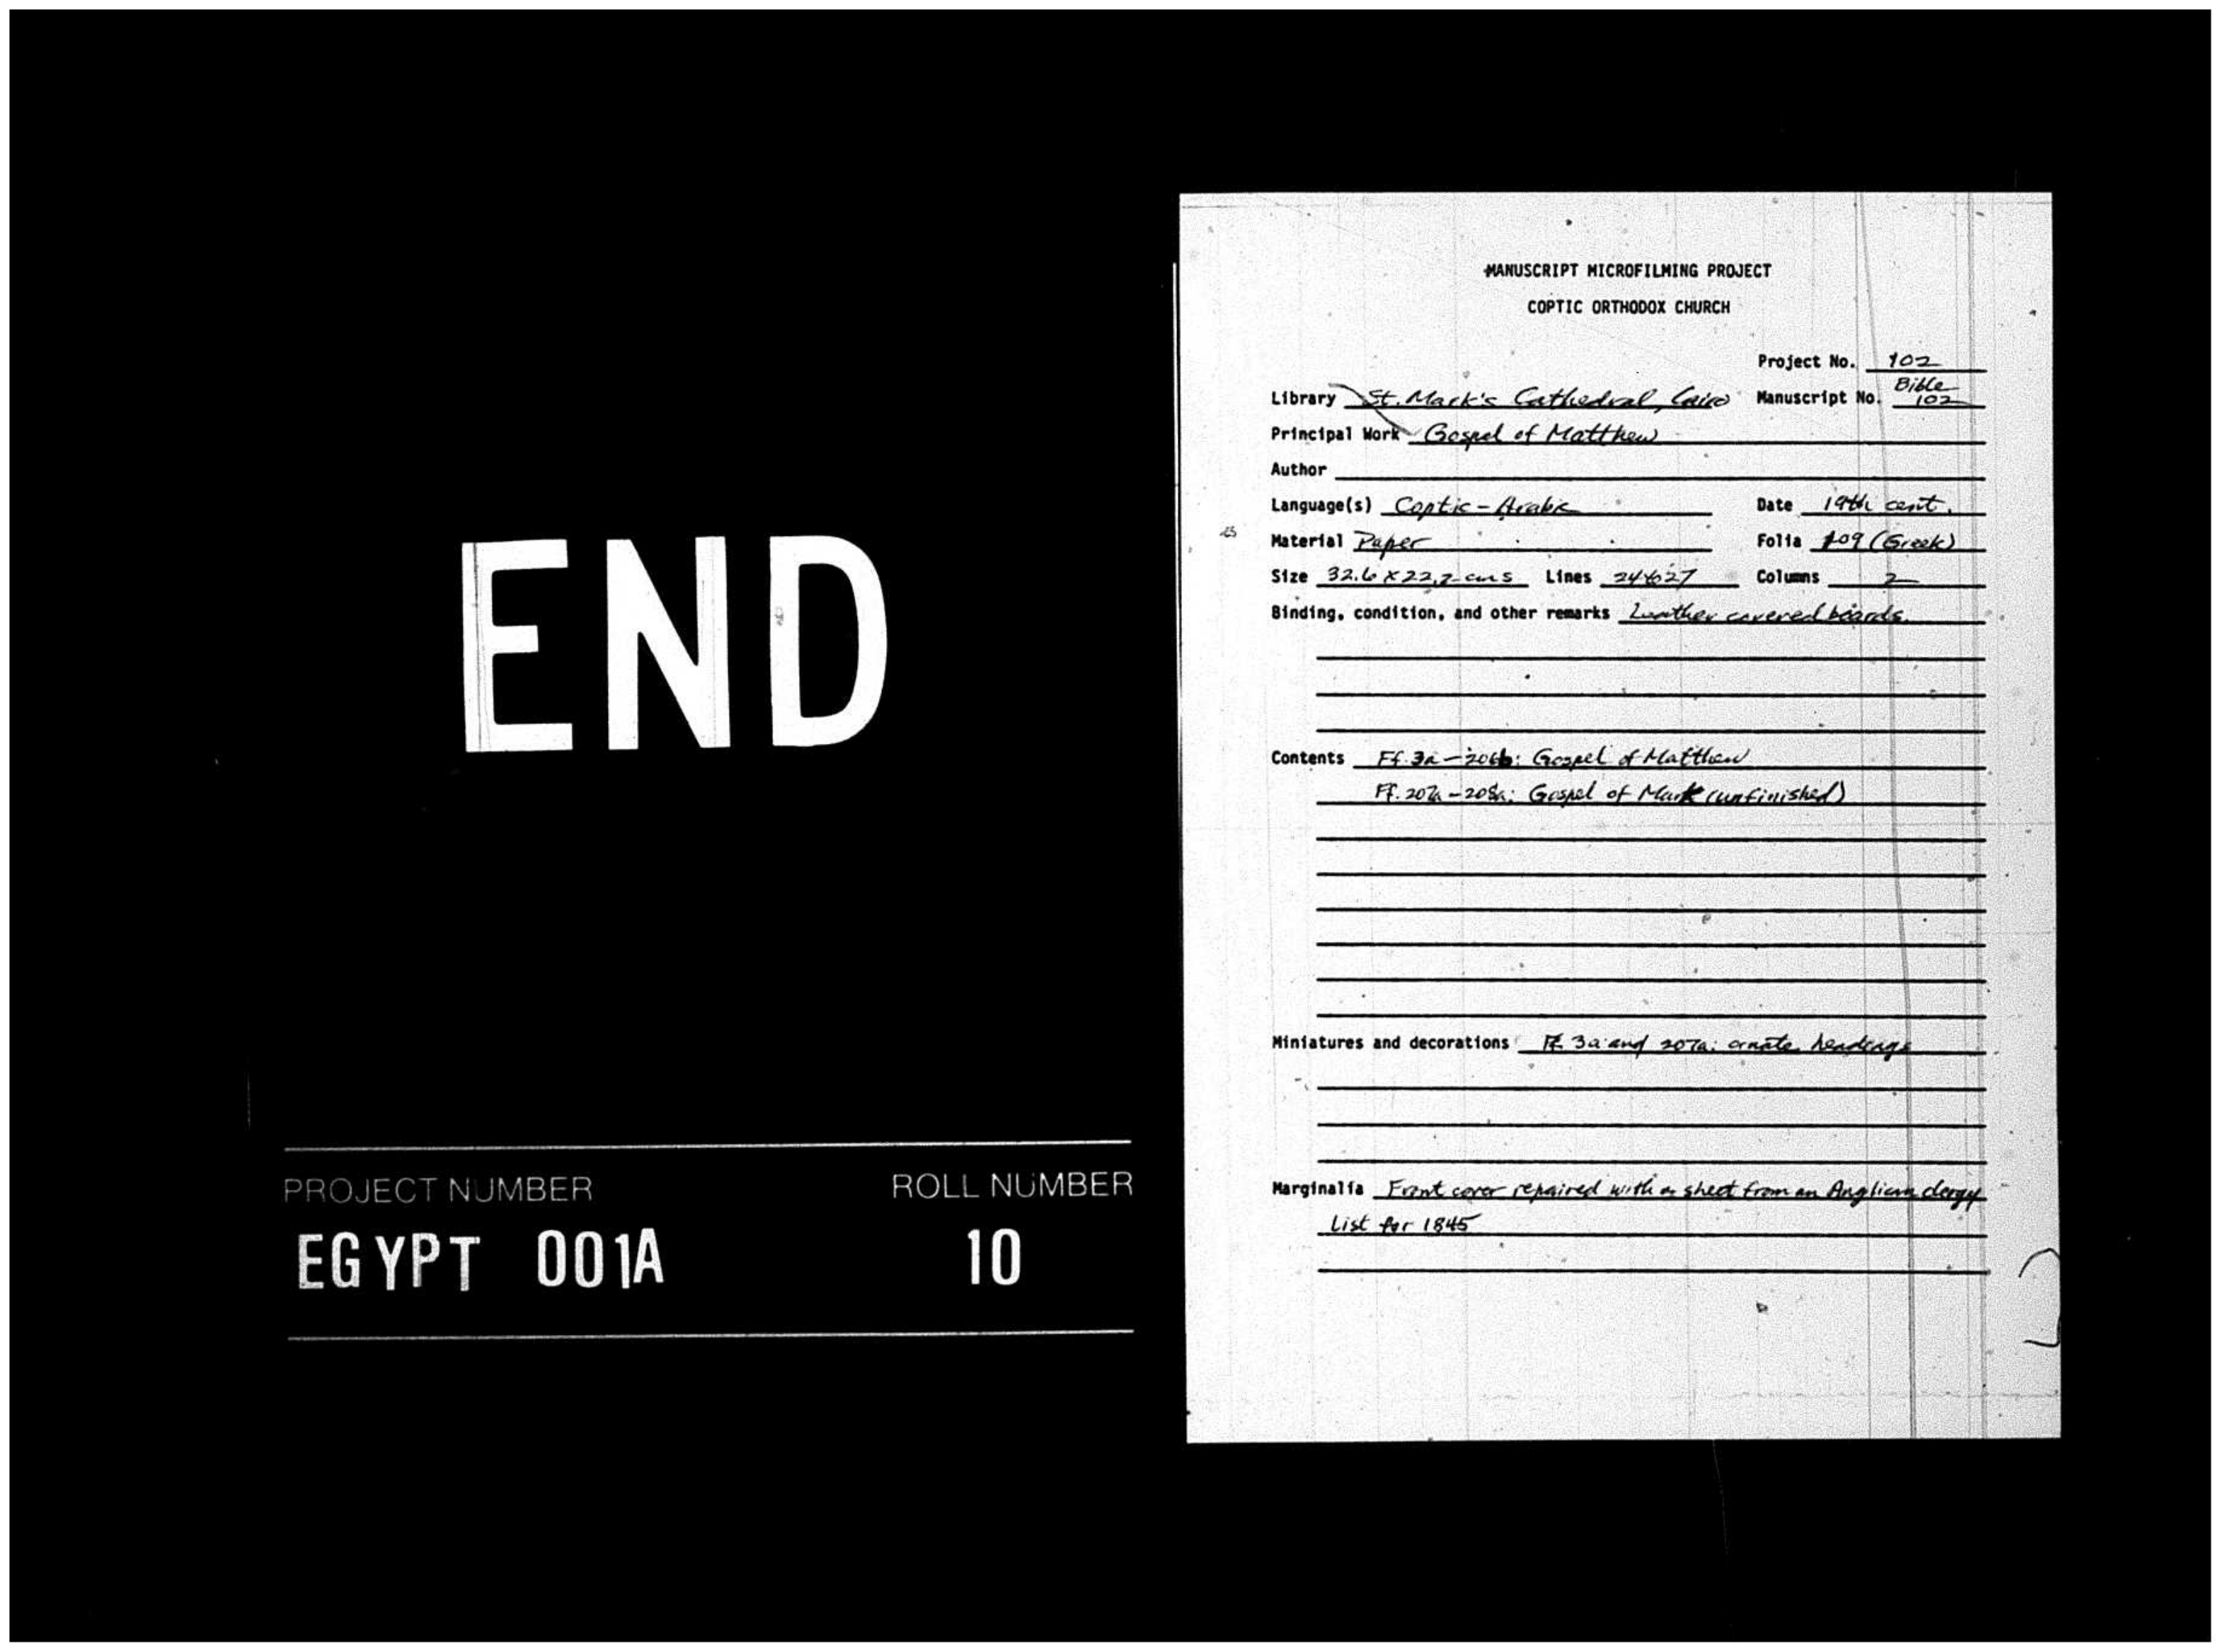 END
PROJECT NUMBER ROLL NUMBER
EGYPT 001A 10
MANUSCRIPT MICROFILMING PROJECT
COPTIC ORTHODOX CHURCH
Project No. 102
Library St. Mark's Cathedral, Cairo Manuscript No. Bible 102
Principal Work Gospel of Matthew
Author
Language(s) Coptic-Arabic Date 19th cent.
Material Paper Folia 209 (Greek)
Size 32.6 x 22.2 cms Lines 24 to 27 Columns 2
Binding, condition, and other remarks Leather covered boards.
Contents Ff. 3a-206b: Gospel of Matthew
Ff. 207a-208a: Gospel of Mark (unfinished)
Miniatures and decorations Ff. 3a and 207a: ornate headings
Marginalia Front cover repaired with a sheet from an Anglican clergy
List for 1845